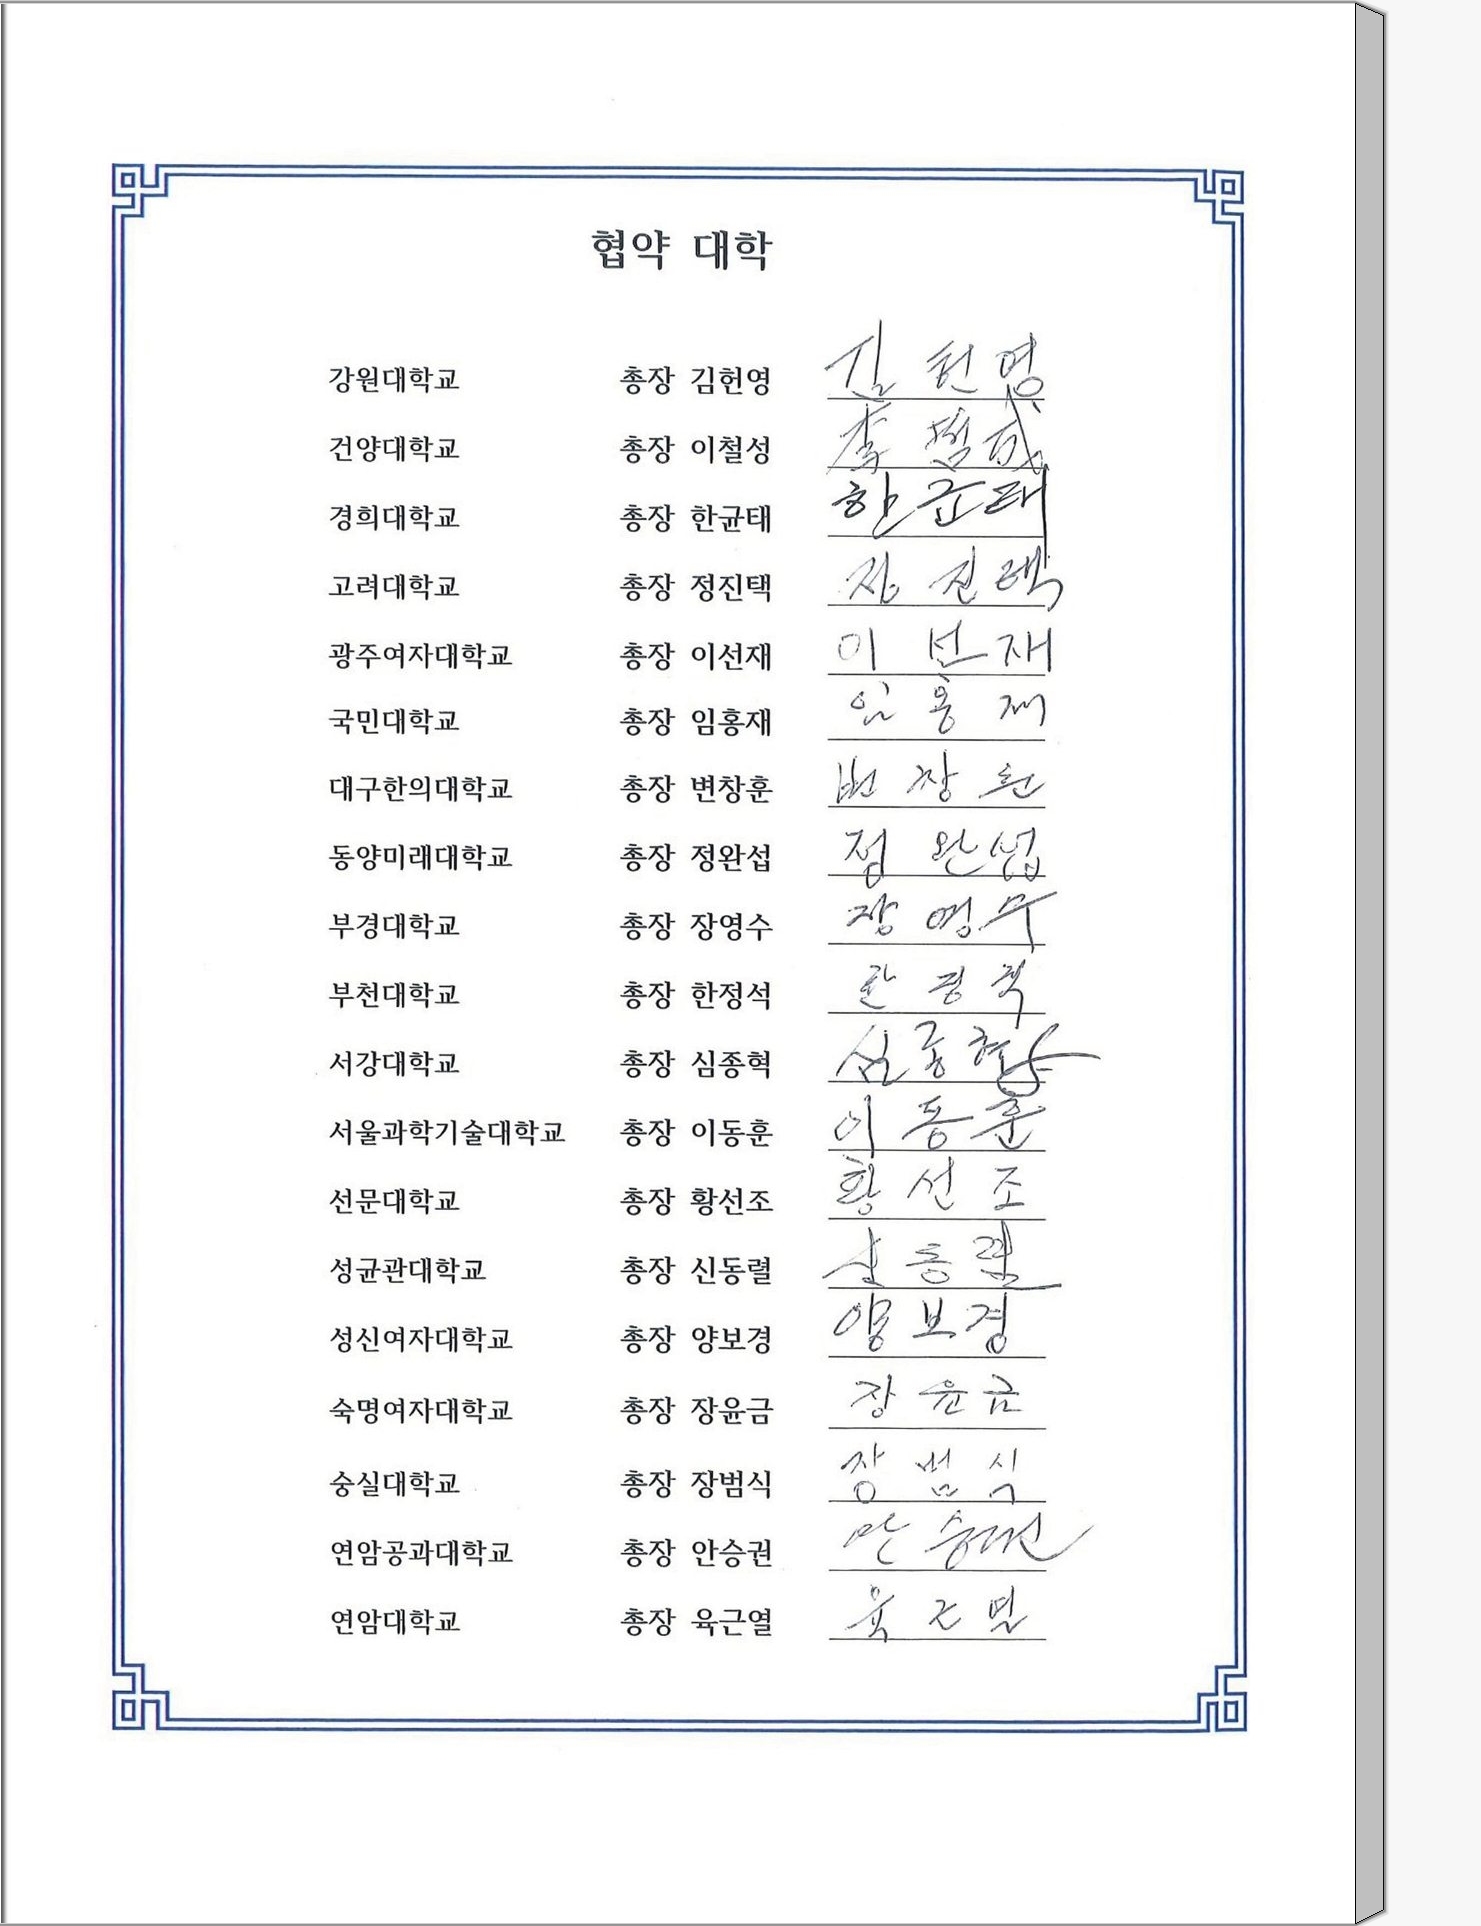 협약 대학
강원대학교 총장 김헌영 김헌영
건양대학교 총장 이철성 李哲成
경희대학교 총장 한균태 한균태
고려대학교 총장 정진택 정진택
광주여자대학교 총장 이선재 이선재
국민대학교 총장 임홍재 임홍재
대구한의대학교 총장 변창훈 변창훈
동양미래대학교 총장 정완섭 정완섭
부경대학교 총장 장영수 장영수
부천대학교 총장 한정석 한정석
서강대학교 총장 심종혁 심종혁
서울과학기술대학교 총장 이동훈 이동훈
선문대학교 총장 황선조 황선조
성균관대학교 총장 신동렬 신동렬
성신여자대학교 총장 양보경 양보경
숙명여자대학교 총장 장윤금 장윤금
숭실대학교 총장 장범식 장범식
연암공과대학교 총장 안승권 안승권
연암대학교 총장 육근열 육근열